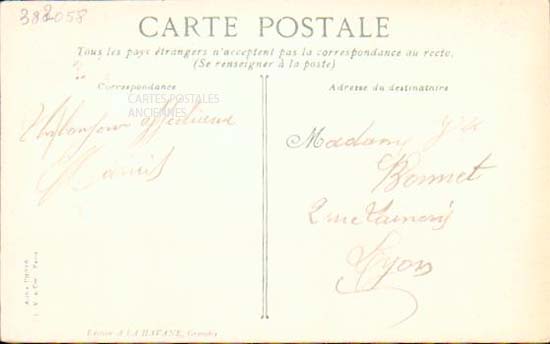 382058
CARTE POSTALE
Tous les pays étrangers n'acceptent pas la correspondance au recto.
(Se renseigner à la poste)
Correspondance
CARTES POSTALES
ANCIENNES
Un bonjour affectueux
Adresse du destinataire
Madame
Bonnet
2 rue
Lyon
LA HAVANE, Grenoble